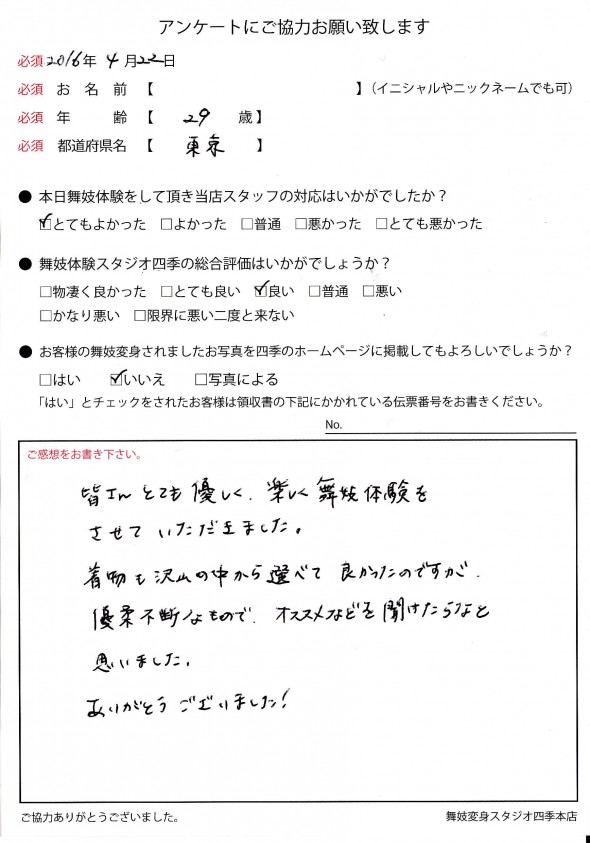 アンケートにご協力お願い致します
必須 2016年 4月22日
必須 お 名 前 【 】（イニシャルやニックネームでも可）
必須 年 齢 【 29 歳】
必須 都道府県名 【 東京 】
● 本日舞妓体験をして頂き当店スタッフの対応はいかがでしたか？
☑とてもよかった □よかった □普通 □悪かった □とても悪かった
● 舞妓体験スタジオ四季の総合評価はいかがでしょうか？
□物凄く良かった □とても良い ☑良い □普通 □悪い
□かなり悪い □限界に悪い二度と来ない
● お客様の舞妓変身されましたお写真を四季のホームページに掲載してもよろしいでしょうか？
□はい ☑いいえ □写真による
「はい」とチェックをされたお客様は領収書の下記にかかれている伝票番号をお書きください。
No.
ご感想をお書き下さい。
皆さんとても優しく、楽しく舞妓体験を
させていただきました。
着物も沢山の中から選べて良かったのですが、
優柔不断なもので、オススメなどを聞けたらなと
思いました。
ありがとうございました！
ご協力ありがとうございました。
舞妓変身スタジオ四季本店